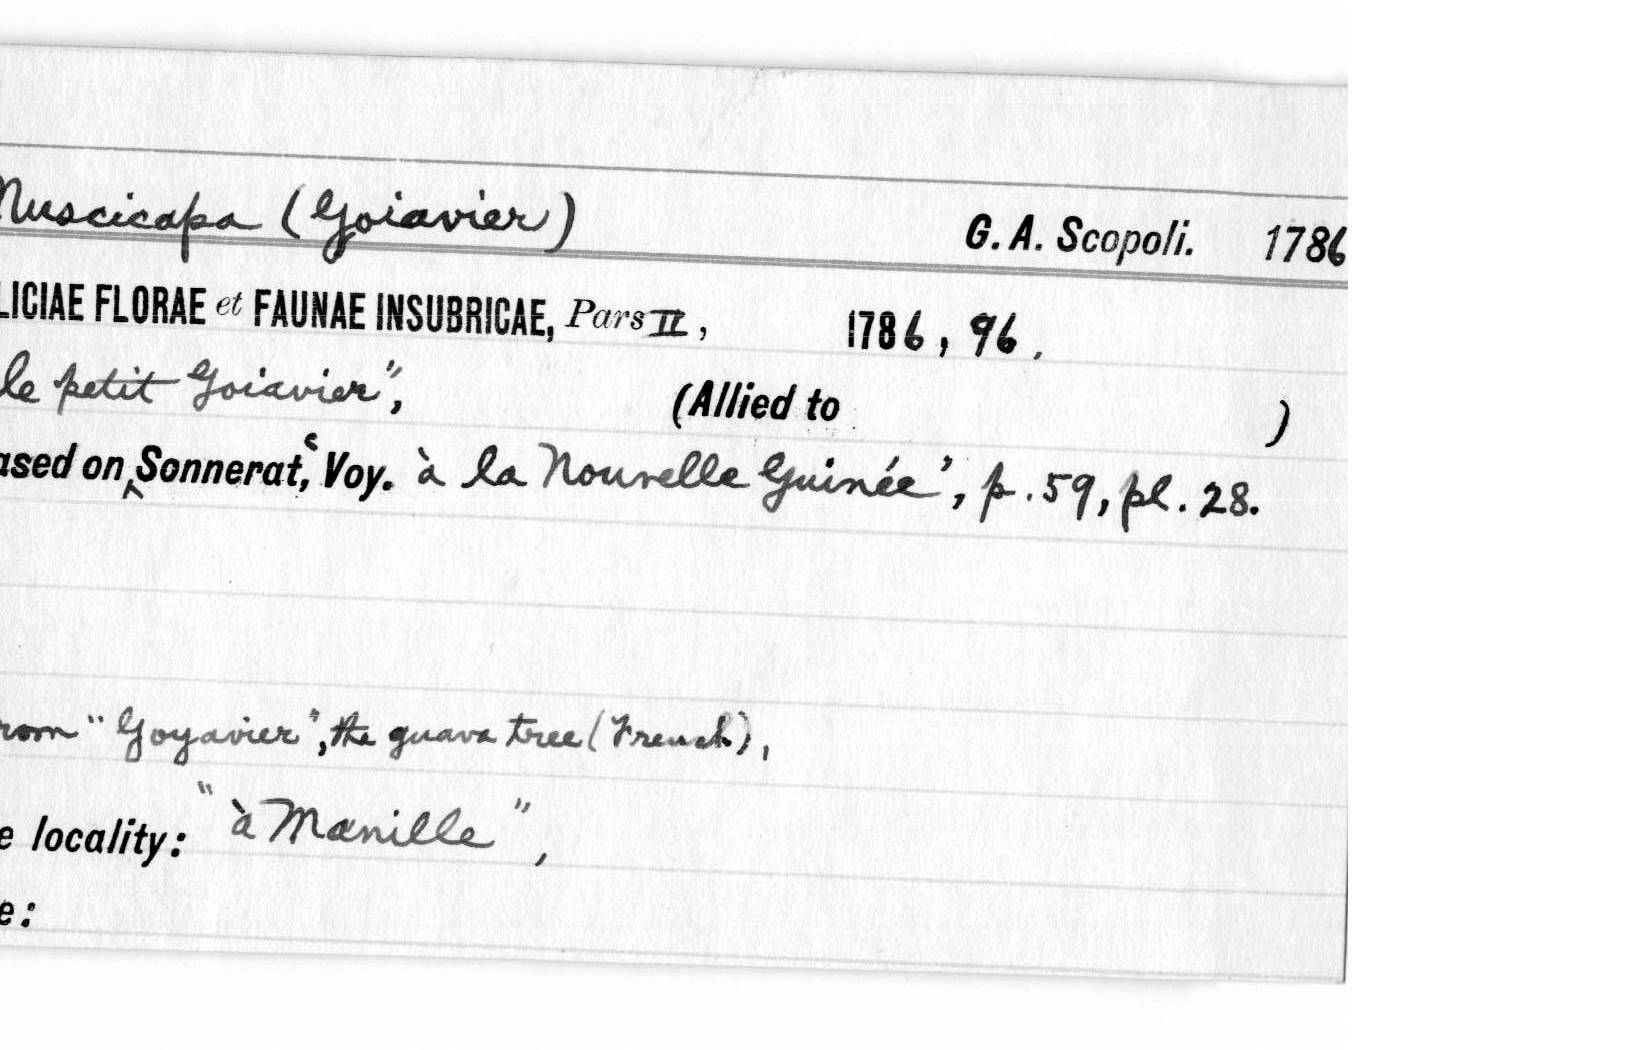 Muscicapa (Goiavier) G. A. Scopoli. 1786
LICIAE FLORAE et FAUNAE INSUBRICAE, Pars II, 1786, 96.
le petit Goiavier", (Allied to )
ased on Sonnerat, 'Voy. à la Nouvelle Guinée', p. 59, pl. 28.
rom "Goyavier", the guava tree (French),
e locality: "à Manille",
e: